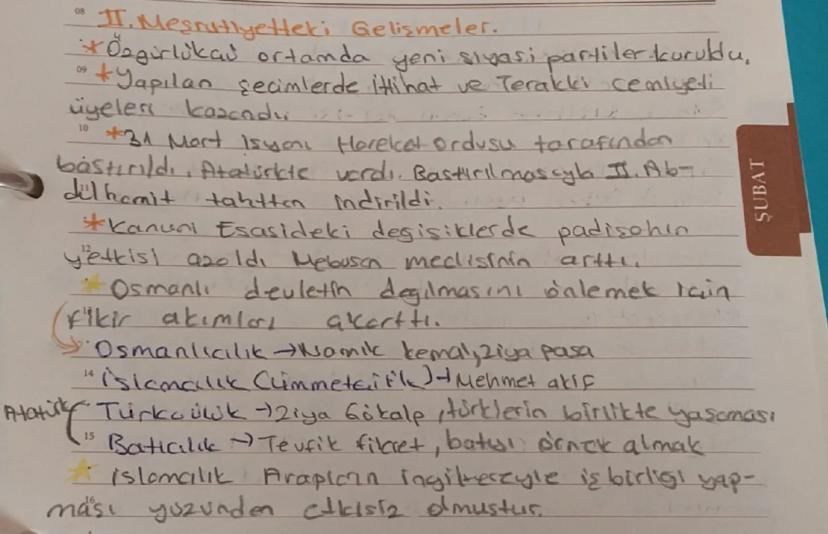 08 II. Meşrutiyetteki Gelişmeler.
*Özgürlükçü ortamda yeni siyasi partiler kuruldu.
09 *Yapılan seçimlerde İttihat ve Terakki cemiyeti
üyeleri kazandı.
10 *31 Mart isyanı Hareket ordusu tarafından
bastırıldı. Atatürkte vardı. Bastırılmasıyla II. Ab-
dülhamit tahttan indirildi.
*Kanuni Esasideki degisiklerde padişahın
12 yetkisi azaldı Mebusan meclisinin arttı.
*Osmanlı devletin dağılmasını önlemek için
fikir akımları çıkarttı.
Osmanlıcılık → Namık kemal, ziya paşa
14 İslamcılık (ümmetcilik) → Mehmet akif
Atatürk Türkçülük → Ziya Gökalp, türklerin birlikte yaşaması
15 Batıcılık → Tevfik fikret, batıyı örnek almak
*islamcılık Arapların ingilterezyle iş birliği yap-
16 ması yüzünden etkisiz olmuştur.
ŞUBAT